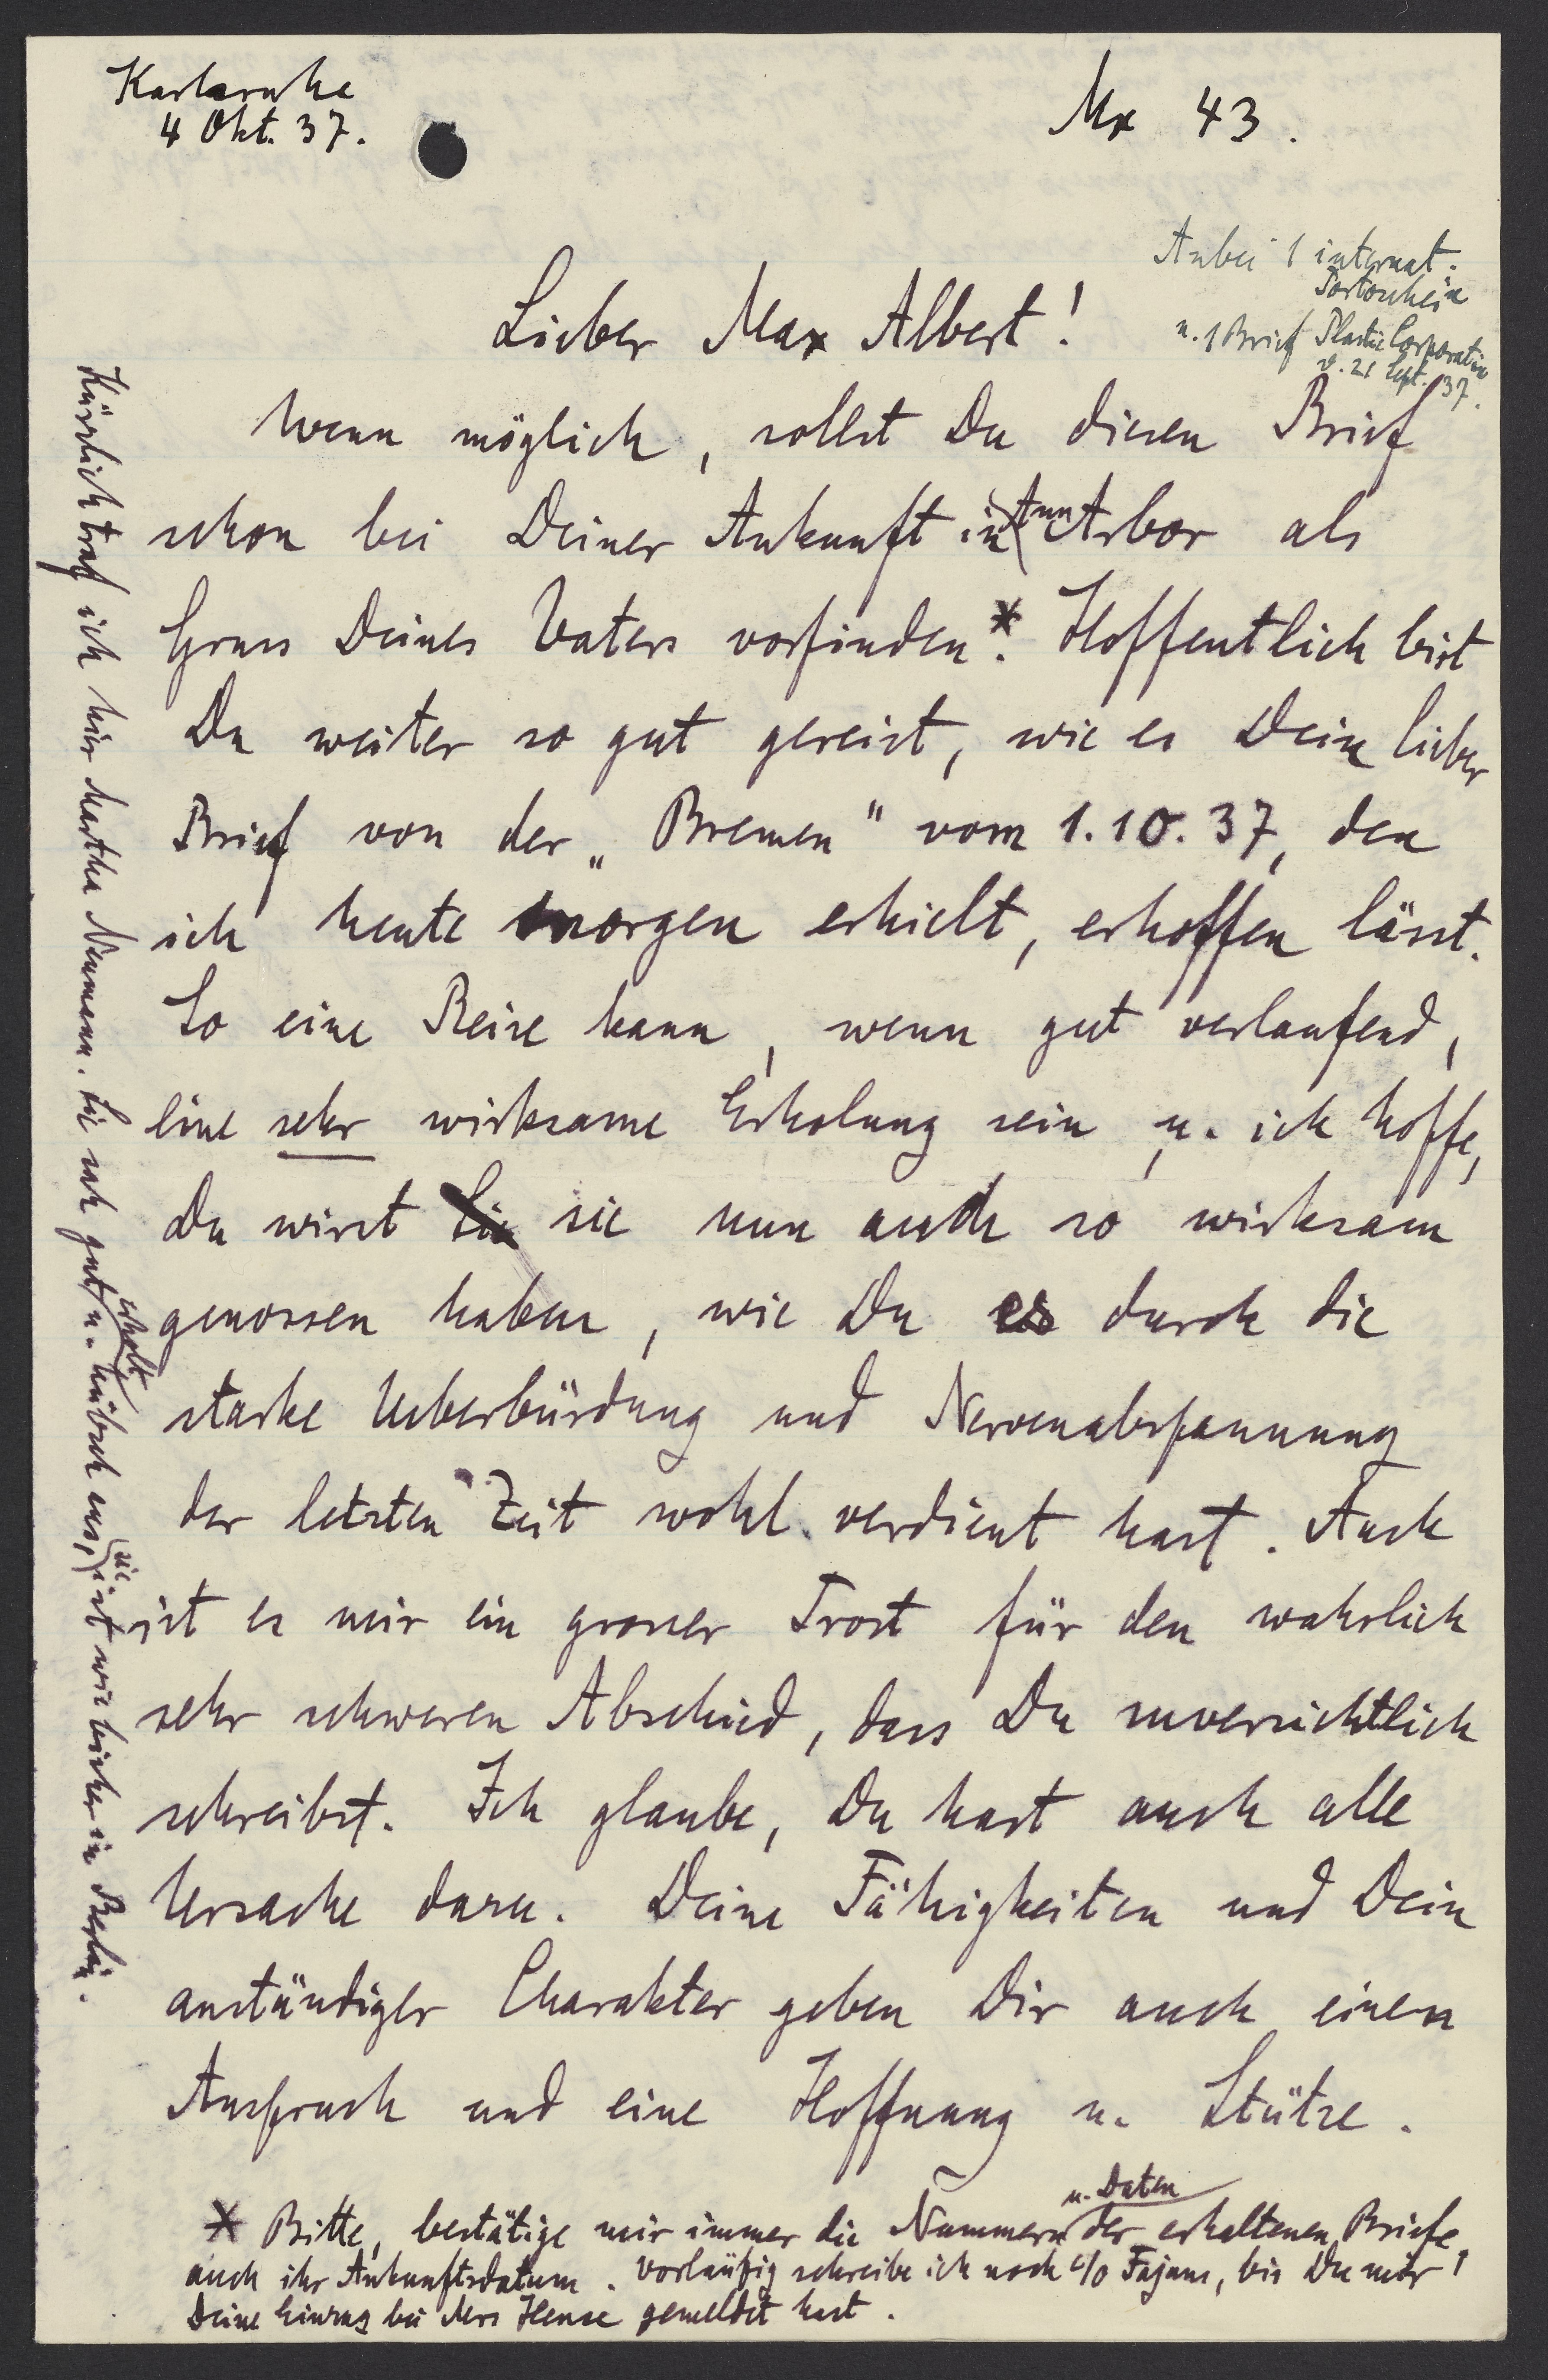 Karlsruhe
4 Okt. 37.
Mx 43.
Anbei 1 internat.
Portoschein
u. 1 Brief Plastic Corporation
v. 21 Sept. 37.
Lieber Max Albert!
Wenn möglich, sollst Du diesen Brief
schon bei Deiner Ankunft in Ann Arbor als
Gruss Deines Vaters vorfinden.* Hoffentlich bist
Du weiter so gut gereist, wie es Dein lieber
Brief von der „Bremen" vom 1.10.37, den
ich heute morgen erhielt, erhoffen lässt.
So eine Reise kann, wenn gut verlaufend,
eine sehr wirksame Erholung sein, u. ich hoffe,
Du wirst sie nun auch so wirksam
genossen haben, wie Du es durch die
starke Ueberbürdung und Nervenabspannung
der letzten Zeit wohl verdient hast. Auch
ist es mir ein grosser Trost für den wahrlich
sehr schweren Abschied, dass Du zuversichtlich
schreibst. Ich glaube, Du hast auch alle
Ursache dazu. Deine Fähigkeiten und Dein
anständiger Charakter geben Dir auch einen
Anspruch und eine Hoffnung u. Stütze.
* Bitte, bestätige mir immer die Nummern u. Daten der erhaltenen Briefe,
auch ihr Ankunftsdatum. Vorläufig schreibe ich noch c/o Fajans, bis Du mir
Deine Einzug bei Mrs Hense gemeldet hast.
Kürzlich traf ich hier Martha Neumann. Sie sah gut erholt u. hübsch aus, sie ist wie bisher in Berlin.